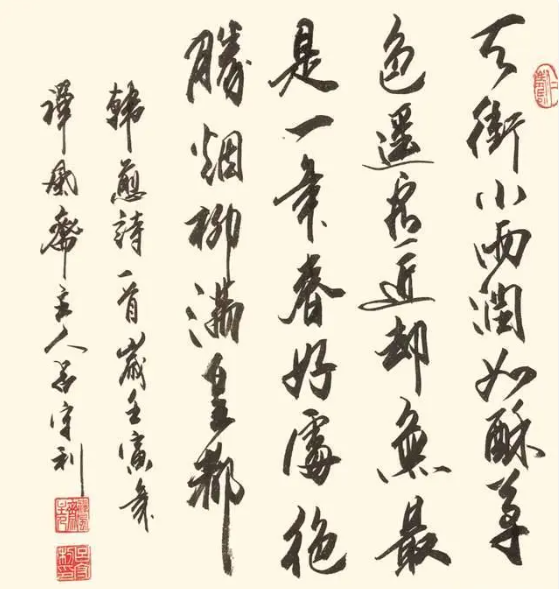 天街小雨潤如酥草
色遥看近却無最
是一年春好處絶
勝烟柳滿皇都
韓愈詩一首歲壬寅年
風齋主人吕守利